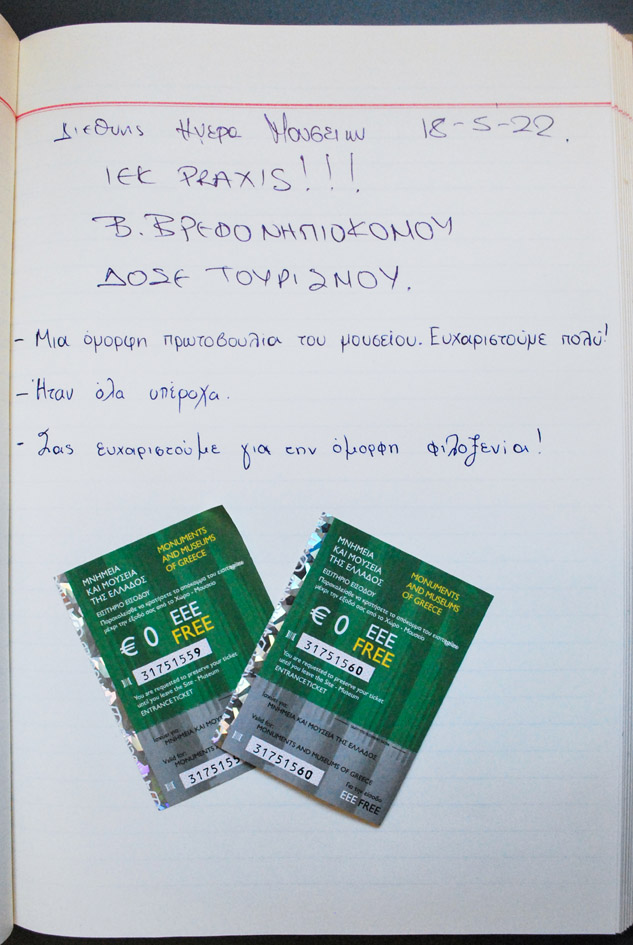 Διεθνης Ημερα Μουσειων 18-5-22.
ΙΕΚ PRAXIS!!!
Β. ΒΡΕΦΟΝΗΠΙΟΚΟΜΟΥ
ΔΟΣΕ ΤΟΥΡΙΣΜΟΥ.
- Μια όμορφη πρωτοβουλία του μουσείου. Ευχαριστούμε πολύ!
- Ήταν όλα υπέροχα.
- Σας ευχαριστούμε για την όμορφη φιλοξενία!
ΜΝΗΜΕΙΑ
ΚΑΙ ΜΟΥΣΕΙΑ
ΤΗΣ ΕΛΛΑΔΟΣ
MONUMENTS
AND MUSEUMS
OF GREECE
ΕΙΣΙΤΗΡΙΟ ΕΙΣΟΔΟΥ
Παρακαλείσθε να κρατήσετε το απόκομμα του εισιτηρίου
μέχρι την έξοδό σας από το Χώρο - Μουσείο
€ 0 ΕΕΕ
FREE
31751559
You are requested to preserve your ticket
until you leave the Site - Museum
ENTRANCE TICKET
Ισχύει για:
ΜΝΗΜΕΙΑ ΚΑΙ ΜΟΥΣ
Valid for:
MONUMENTS
3175155
ΜΝΗΜΕΙΑ
ΚΑΙ ΜΟΥΣΕΙΑ
ΤΗΣ ΕΛΛΑΔΟΣ
MONUMENTS
AND MUSEUMS
OF GREECE
ΕΙΣΙΤΗΡΙΟ ΕΙΣΟΔΟΥ
Παρακαλείσθε να κρατήσετε το απόκομμα του εισιτηρίου
μέχρι την έξοδό σας από το Χώρο - Μουσείο
€ 0 ΕΕΕ
FREE
31751560
You are requested to preserve your ticket
until you leave the Site - Museum
ENTRANCE TICKET
Ισχύει για:
ΜΝΗΜΕΙΑ ΚΑΙ ΜΟΥΣΕΙΑ ΤΗΣ ΕΛΛΑΔΟΣ
Valid for:
MONUMENTS AND MUSEUMS OF GREECE
31751560
Για την είσοδο
ΕΕΕ FREE